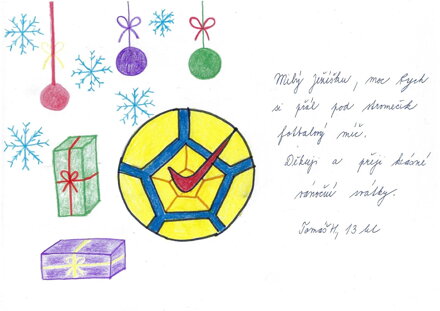 Milý Ježíšku, moc bych
si přál pod stromeček
fotbalový míč.
Děkuji a přeji krásné
vánoční svátky.
Tomáš H, 13 let